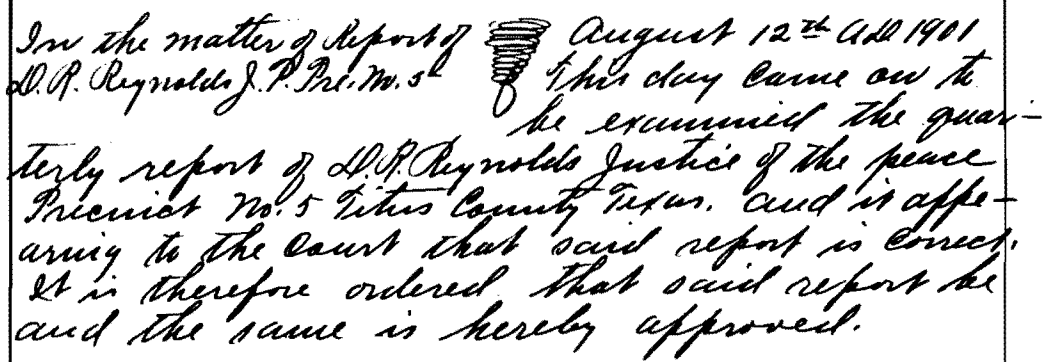 In the matter of Report of August 12th A.D. 1901
D.R. Reynolds J.P. Pre. No. 5 This day came on to
be examined the quar-
terly report of D.R. Reynolds Justice of the peace
Precinct No. 5 Titus County Texas. and it appe-
aring to the Court that said report is correct.
It is therefore ordered that said report be
and the same is hereby approved.